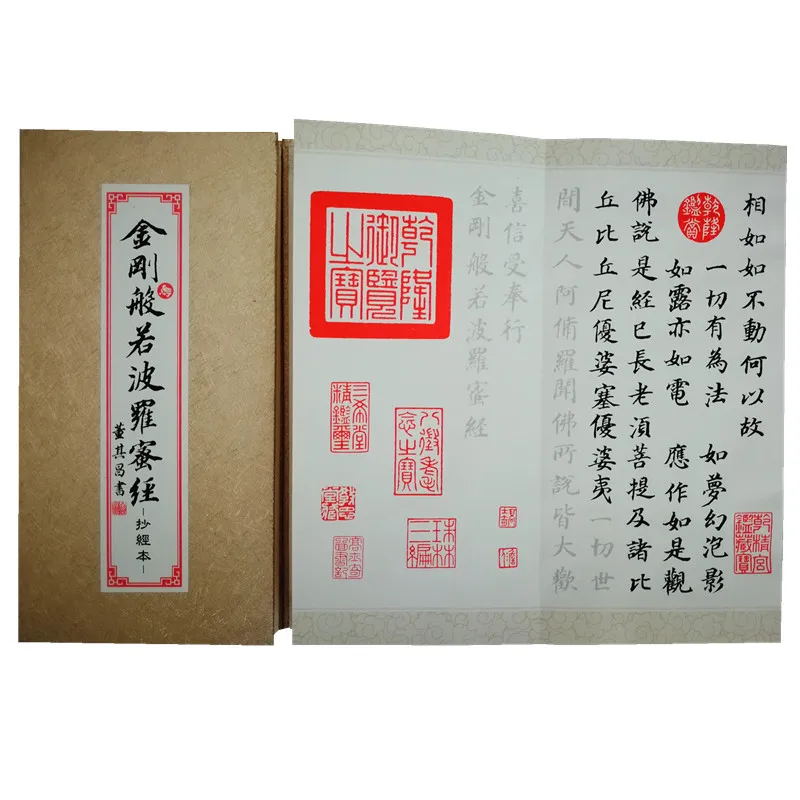 金剛般若波羅蜜經
董其昌書
-抄經本-
相如如不動何以故
一切有為法 如夢幻泡影
如露亦如電 應作如是觀
乾隆鑑賞
佛說是經已長老須菩提及諸比
丘比丘尼優婆塞優婆夷一切世
間天人阿脩羅聞佛所說皆大歡
喜信受奉行
金剛般若波羅蜜經
乾隆御覽之寶
三希堂精鑑璽
八徵耄念之寶